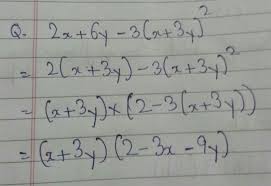 Q. 2x+6y-3(x+3y)²
= 2(x+3y)-3(x+3y)²
= (x+3y)×(2-3(x+3y))
= (x+3y)(2-3x-9y)